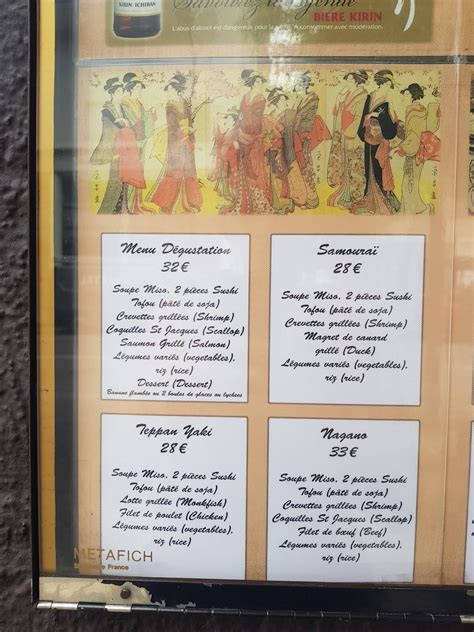 KIRIN ICHIBAN
BIERE KIRIN
L'abus d'alcool est dangereux pour la santé. A consommer avec modération.
Menu Dégustation
32€
Soupe Miso, 2 pièces Sushi
Tofou (pâté de soja)
Crevettes grillées (Shrimp)
Coquilles St Jacques (Scallop)
Saumon Grillé (Salmon)
Légumes variés (vegetables),
riz (rice)
Dessert (Dessert)
Banane flambée ou 2 boules de glaces ou lychees
Samouraï
28€
Soupe Miso, 2 pièces Sushi
Tofou (pâté de soja)
Crevettes grillées (Shrimp)
Magret de canard
grillé (Duck)
Légumes variés (vegetables),
riz (rice)
Teppan Yaki
28€
Soupe Miso, 2 pièces Sushi
Tofou (pâté de soja)
Lotte grillée (Monkfish)
Filet de poulet (Chicken)
Légumes variés (vegetables),
riz (rice)
Nagano
33€
Soupe Miso, 2 pièces Sushi
Tofou (pâté de soja)
Crevettes grillées (Shrimp)
Coquilles St Jacques (Scallop)
Filet de bœuf (Beef)
Légumes variés (vegetables),
riz (rice)
METAFICH
France